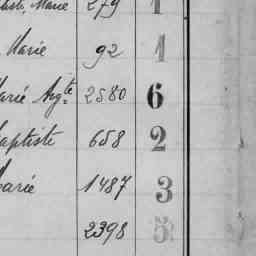 Marie 279 1
Marie 92 1
Marie Agte 2580 6
Baptiste 658 2
Marie 1487 3
2398 5